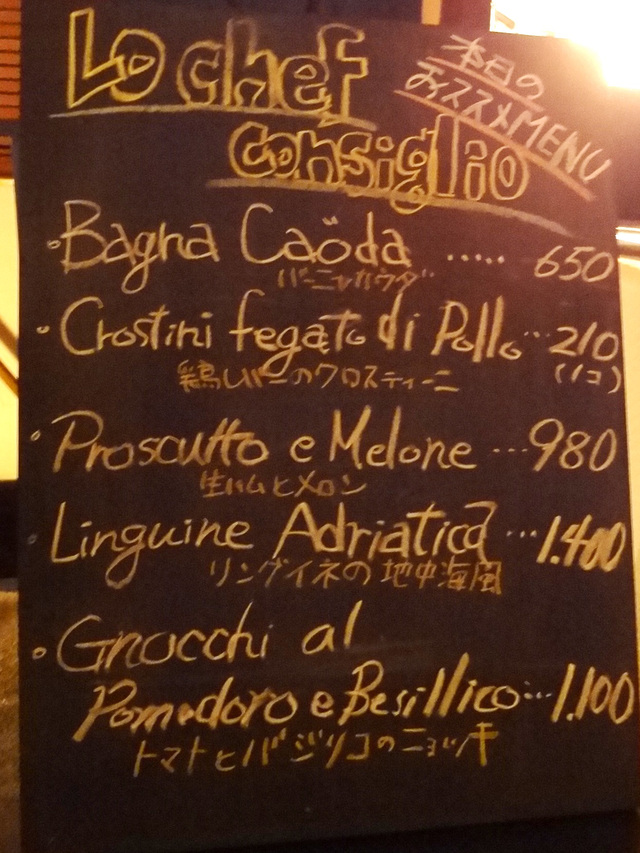 Lo chef
consiglio
本日の
おススメMENU
・Bagna Caöda ..... 650
バーニャカウダ
・Crostini fegato di Pollo ... 210
鶏レバーのクロスティーニ (1コ)
・Proscutto e Melone ... 980
生ハムとメロン
・Linguine Adriatica ... 1.400
リングイネの地中海風
・Gnocchi al
Pomodoro e Besillico ... 1.100
トマトとバジリコのニョッキ